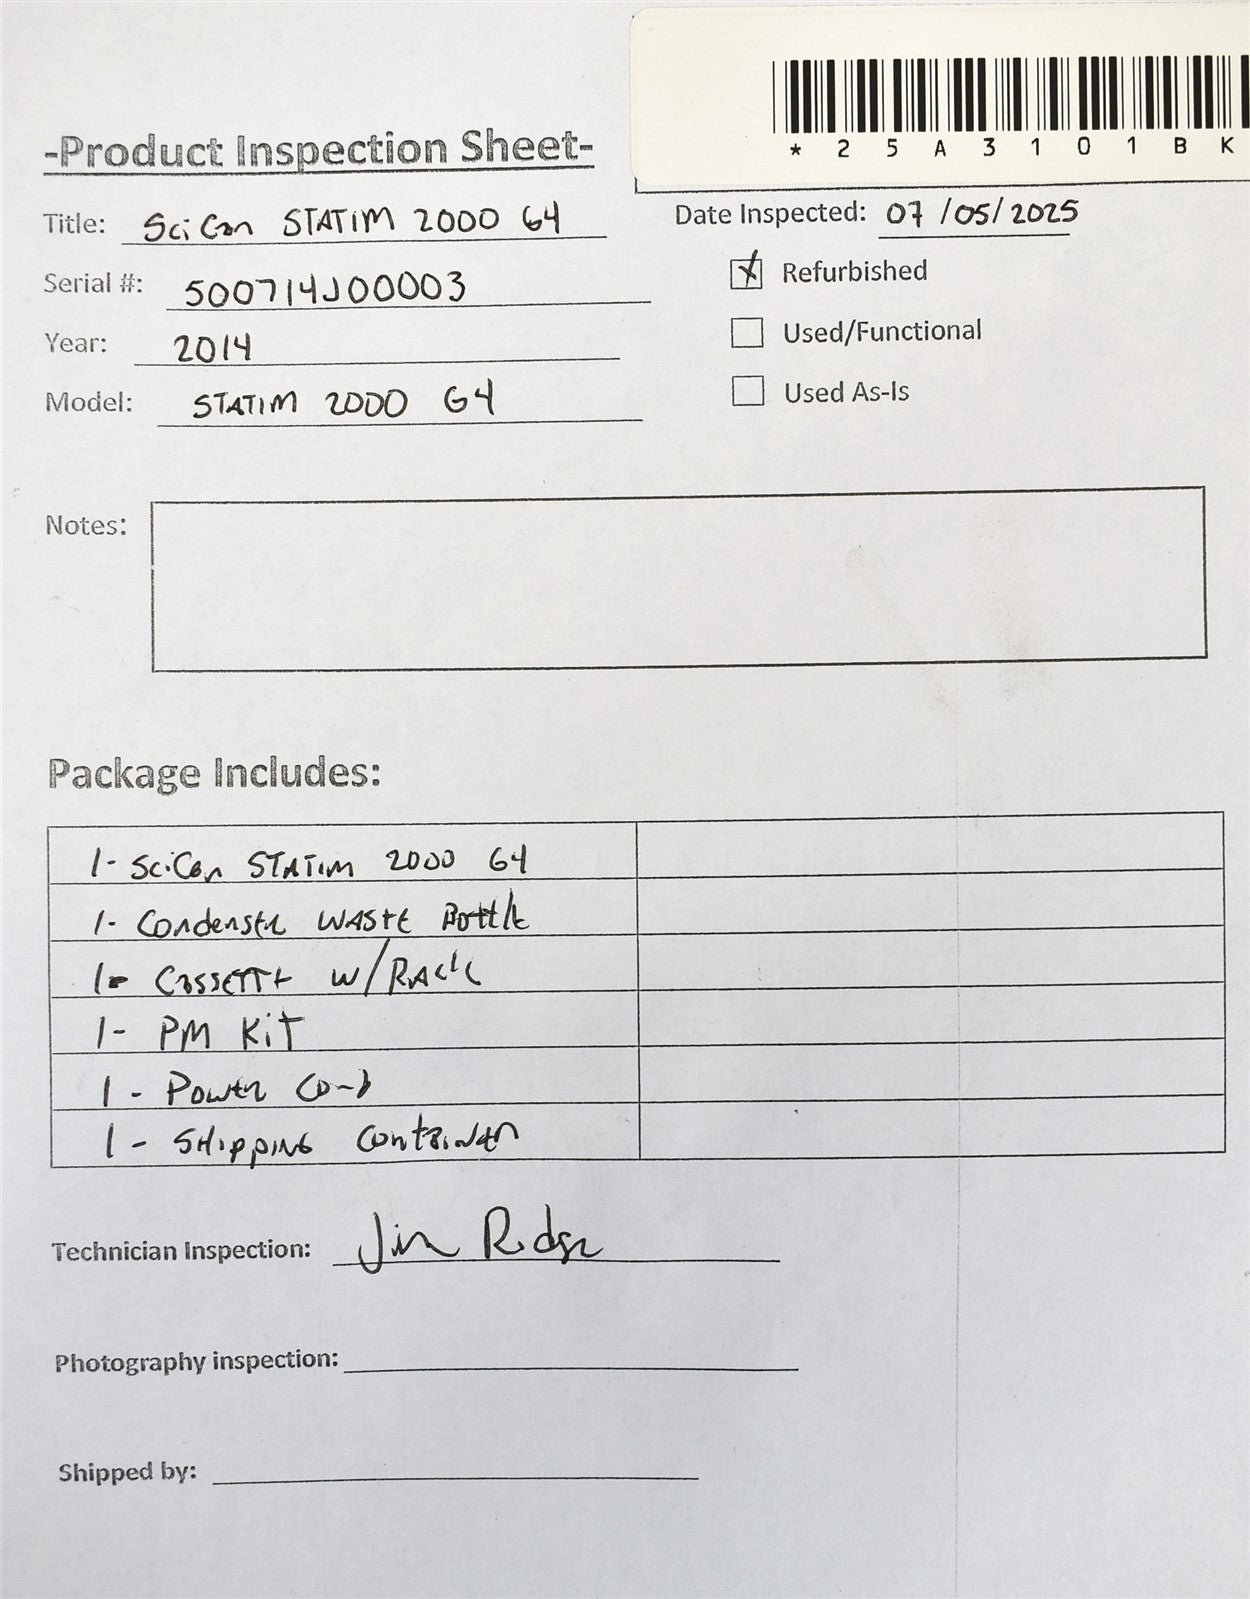 * 2 5 A 3 1 0 1 B K
-Product Inspection Sheet-
Title: SciCan STATIM 2000 G4
Date Inspected: 07/05/2025
Serial #: 500714J00003
Refurbished
Year: 2014
Used/Functional
Model: STATIM 2000 G4
Used As-Is
Notes:
Package Includes:
1- SciCan STATIM 2000 G4
1- Condenser WASTE Bottle
1- CASSETTE w/RACK
1- PM KiT
1- Power Cord
1- SHIPPING Container
Technician Inspection: Jim
Photography inspection:
Shipped by: